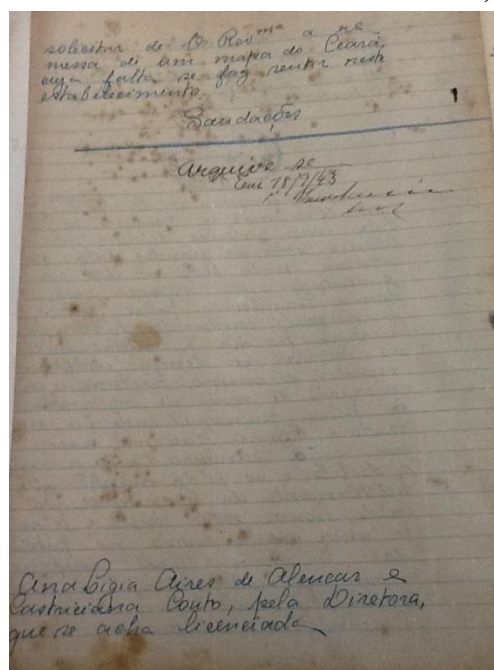 solicitar de V. Revma a re
messa de um mapa do Ceará,
cuja falta se faz sentir neste
estabelecimento.
Saudações
1
Arquive-se
Em 18/7/43
Ana Ligia Aires de Alencar e
Castriciana Couto, pela Diretora,
que se acha licenciada